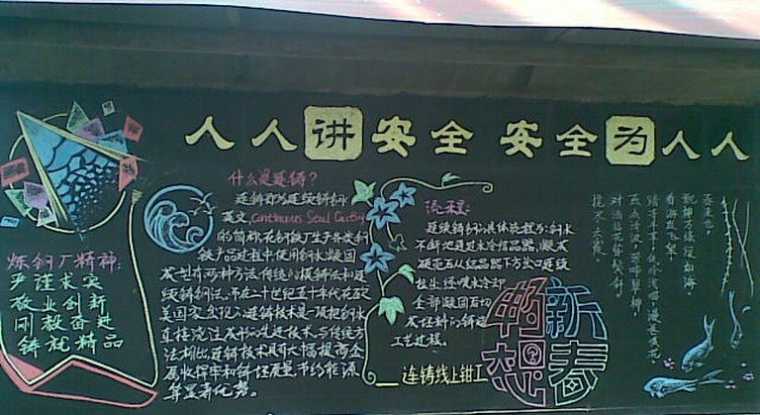 人人讲安全 安全为人人
炼钢厂精神:
严谨求实
敬业创新
刚毅奋进
铸就精品
什么是连铸?
连铸即为连续铸钢
英文,Continuous Steel Casting
的简称,在钢铁厂生产各类钢
铁产品过程中使用钢水凝固
成型有两种方法,传统的模铸法和连
续铸钢法。而在二十世纪五十年代在欧
美国家出现的连铸技术是一项把钢水
直接浇注成形的先进技术。与传统方
法相比,连铸技术具有大幅提高金
属收得率和铸坯质量,节约能源
等显著优势。
流程:
连续铸钢的具体流程为:钢水
不断地通过水冷结晶器,凝成
硬壳后从结晶器下方出口连续
拉出,经喷水冷却
全部凝固后切
成坯料的铸造
工艺过程。
连铸线上钳工
新春
畅想